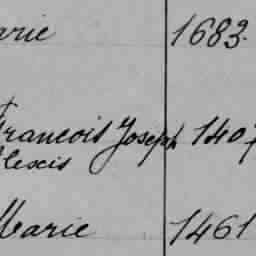 Marie 1683.
Francois Joseph 1407
Alexis
Marie 1461